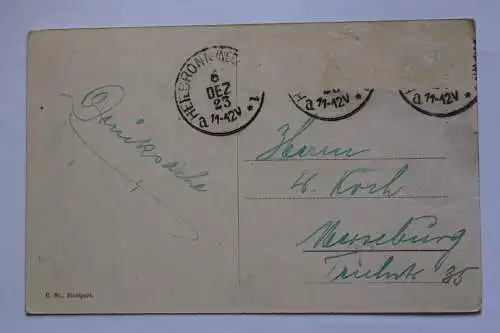 HEILBRONN (NEC
6
DEZ
23
a 11-12V * 1
H
a 11-12V *
H
a 11-12V
Drucksache
Herrn
W. Koch
Merseburg
35
C. St., Stuttgart.